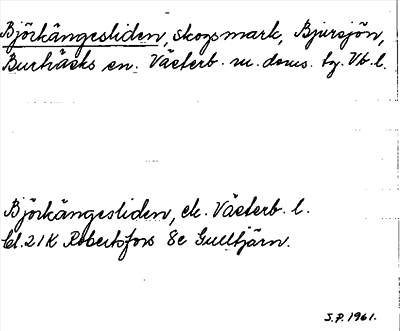 Björkängesliden, skogsmark, Bjursjön,
Burträsks sn. Västerb. m. doms. tg. Vb. l.
Björkängesliden, ek. Västerb. l.
bl. 21K Robertsfors 8e Gulltjärn.
S.P. 1961.